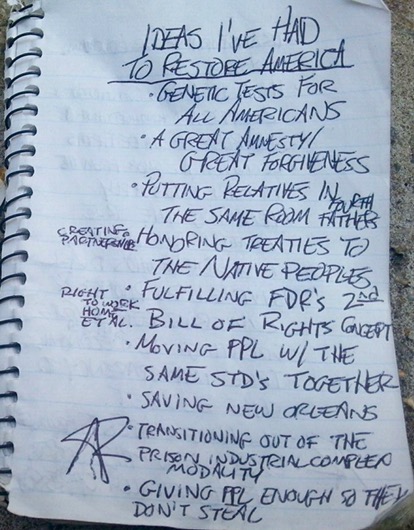 IDEAS I'VE HAD
TO RESTORE AMERICA
• GENETIC TESTS FOR
ALL AMERICANS
• A GREAT AMNESTY/
GREAT FORGIVENESS
• PUTTING RELATIVES IN
THE SAME ROOM FOURTH FATHERS
CREATING PARTNERSHIPS
• HONORING TREATIES TO
THE NATIVE PEOPLES
RIGHT TO WORK HOME ET AL.
• FULFILLING FDR'S 2ND
BILL OF RIGHTS CONCEPT
• MOVING PPL W/ THE
SAME STD'S TOGETHER
• SAVING NEW ORLEANS
• TRANSITIONING OUT OF THE
PRISON INDUSTRIAL COMPLEX
MODALITY
• GIVING PPL ENOUGH SO THEY
DON'T STEAL